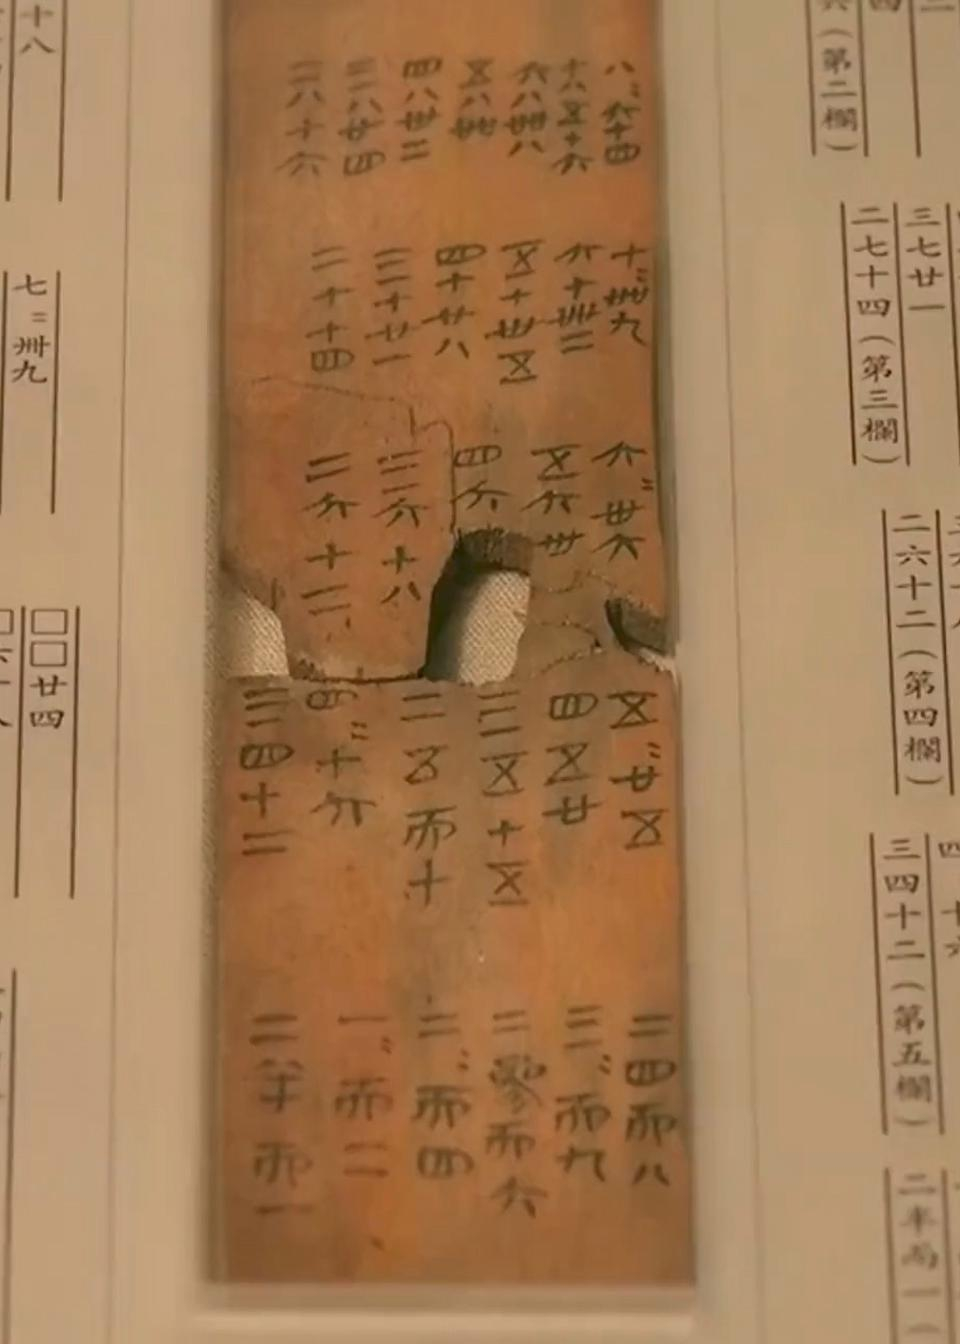 （第二欄）
三七廿一
二七十四（第三欄）
二六十二（第四欄）
三四十二（第五欄）
二半而一（
八=六十四
七八五十六
六八卌八
五八卌
四八卅二
三八廿四
二八十六
七=卌九
六七卌二
五七卅五
四七廿八
三七廿一
二七十四
六=卅六
五六卅
四六
三六十八
二六十二
五=廿五
四五廿
三五十五
二五而十
四=十六
三四十二
二四而八
三=而九
二參而六
二=而四
一=而二
二半而一
十八
七=卌九
□□廿四